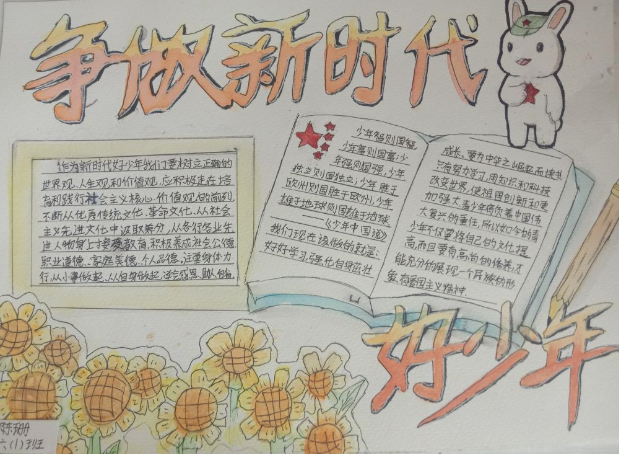 争做新时代
作为新时代好少年我们要树立正确的
世界观、人生观和价值观,应积极走在培
育和践行社会主义核心价值观的前列
不断从优秀传统文化、革命文化、从社会
主义先进文化中汲取养分,从各行各业先
进人物身上接受教育,积极养成社会公德
职业道德、家庭美德、个人品德,注重身体力
行,从小事做起,从自身做起
少年强则国强,
少年富则国富;少
年强则国强,少年
独立则国独立;少年胜于
欧州则国胜于欧州,少年
雄于地球则国雄于地球
——《少年中国说》
我们现在该做的就是:
好好学习,强化自身茁壮
成长,要为中华之崛起而读书
只有努力学习,用知识和科技
改变世界,使祖国创新和更
加强大青少年肩负着中国伟
大复兴的重任,所以如今的青
少年不仅要将自己的文化提
高,而且要有高尚的情操,才
能充分的展现一个民族的形
象,和爱国主义精神
好少年
六(1)班